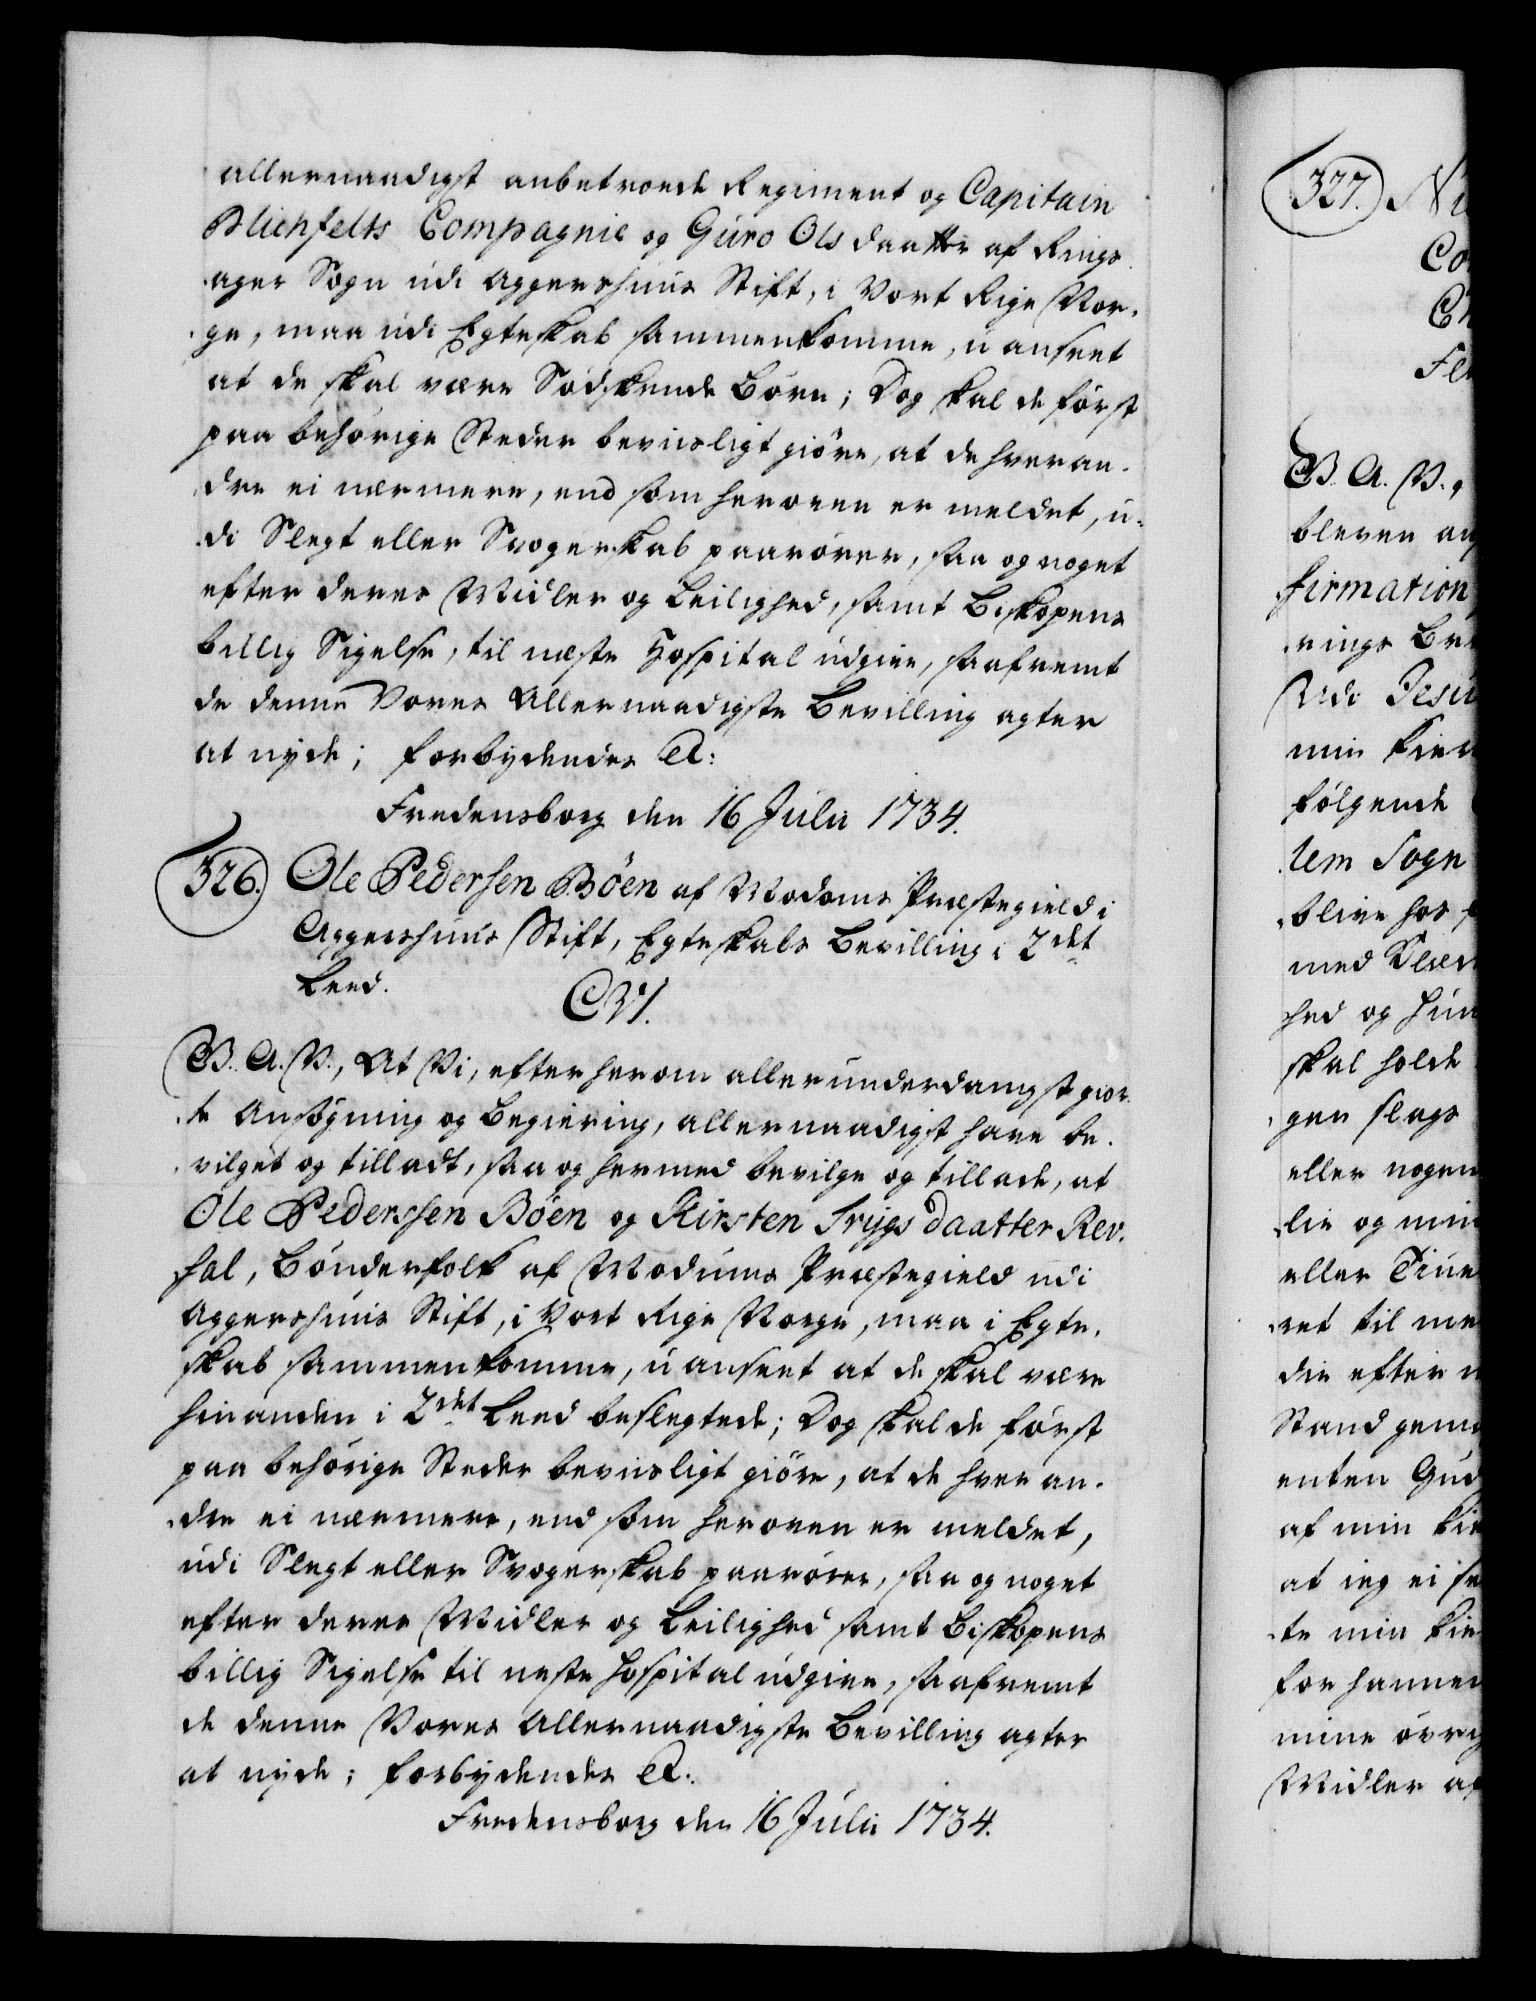 allernaadigst anbetroede Regiment og Capitain
Blichfelts Compagnie og Guro Ols daatter af Rings
ager Sogn udi Aggershuus Stift, i Vort Rige Nor-
ge, maa udi Egteskab sammenkomme, uanseet
at de skal være Sødskende Børn; Dog skal de først
paa behörige Steder beviisligt giöre, at de hveran-
dre ei nærmere, end som heroven er meldet, u-
di Slegt eller Svogerskab paarører, saa og noget
efter deres Midler og Leilighed, samt Biskopens
billig Sigelse, til næste Hospital udgive, saafremt
de denne Vores Allernaadigste Bevilling agter
at nyde; forbydendes &:
Fredensborg den 16 Julii 1734.
326. Ole Pedersen Böen af Modoms Præstegield i
Aggershuus Stift, Egteskabs Bevilling i 2det
Leed.
C VI.
G. A. V., At Vi, efter herom allerunderdanigst gior-
te Ansøgning og Begiering, allernaadigst have be-
vilget og tilladt, saa og hermed bevilge og tillade, at
Ole Pederssen Böen og Kirsten Trygs daatter Rev-
hal, Bönderfolk af Modums Præstegield udi
Aggershuus Stift, i Vort Rige Norge, maa i Egte-
skab sammenkomme, uanseet at de skal være
hinanden i 2det Leed beslegtede; Dog skal de først
paa behörige Steder beviisligt giöre, at de hveran-
dre ei nærmere, end som heroven er meldet,
udi Slegt eller Svogerskab paarører, saa og noget
efter deres Midler og Leilighed samt Biskopens
billig Sigelse til neste Hospital udgive, saafremt
de denne Vores Allernaadigste Bevilling agter
at nyde; forbydendes &.
Fredensborg den 16 Julii 1734.
327.
G. A. V.,
bleven
firmation
rings
Udi Jesu
min
følgende
lem Sogn
blive hos
med
hed og hun
skal holde
gen slags
eller nogen
lie og min
eller
ret til
die efter
Stand
enten Gud
af min
at ieg ei
te min
for hannem
mine
Midler